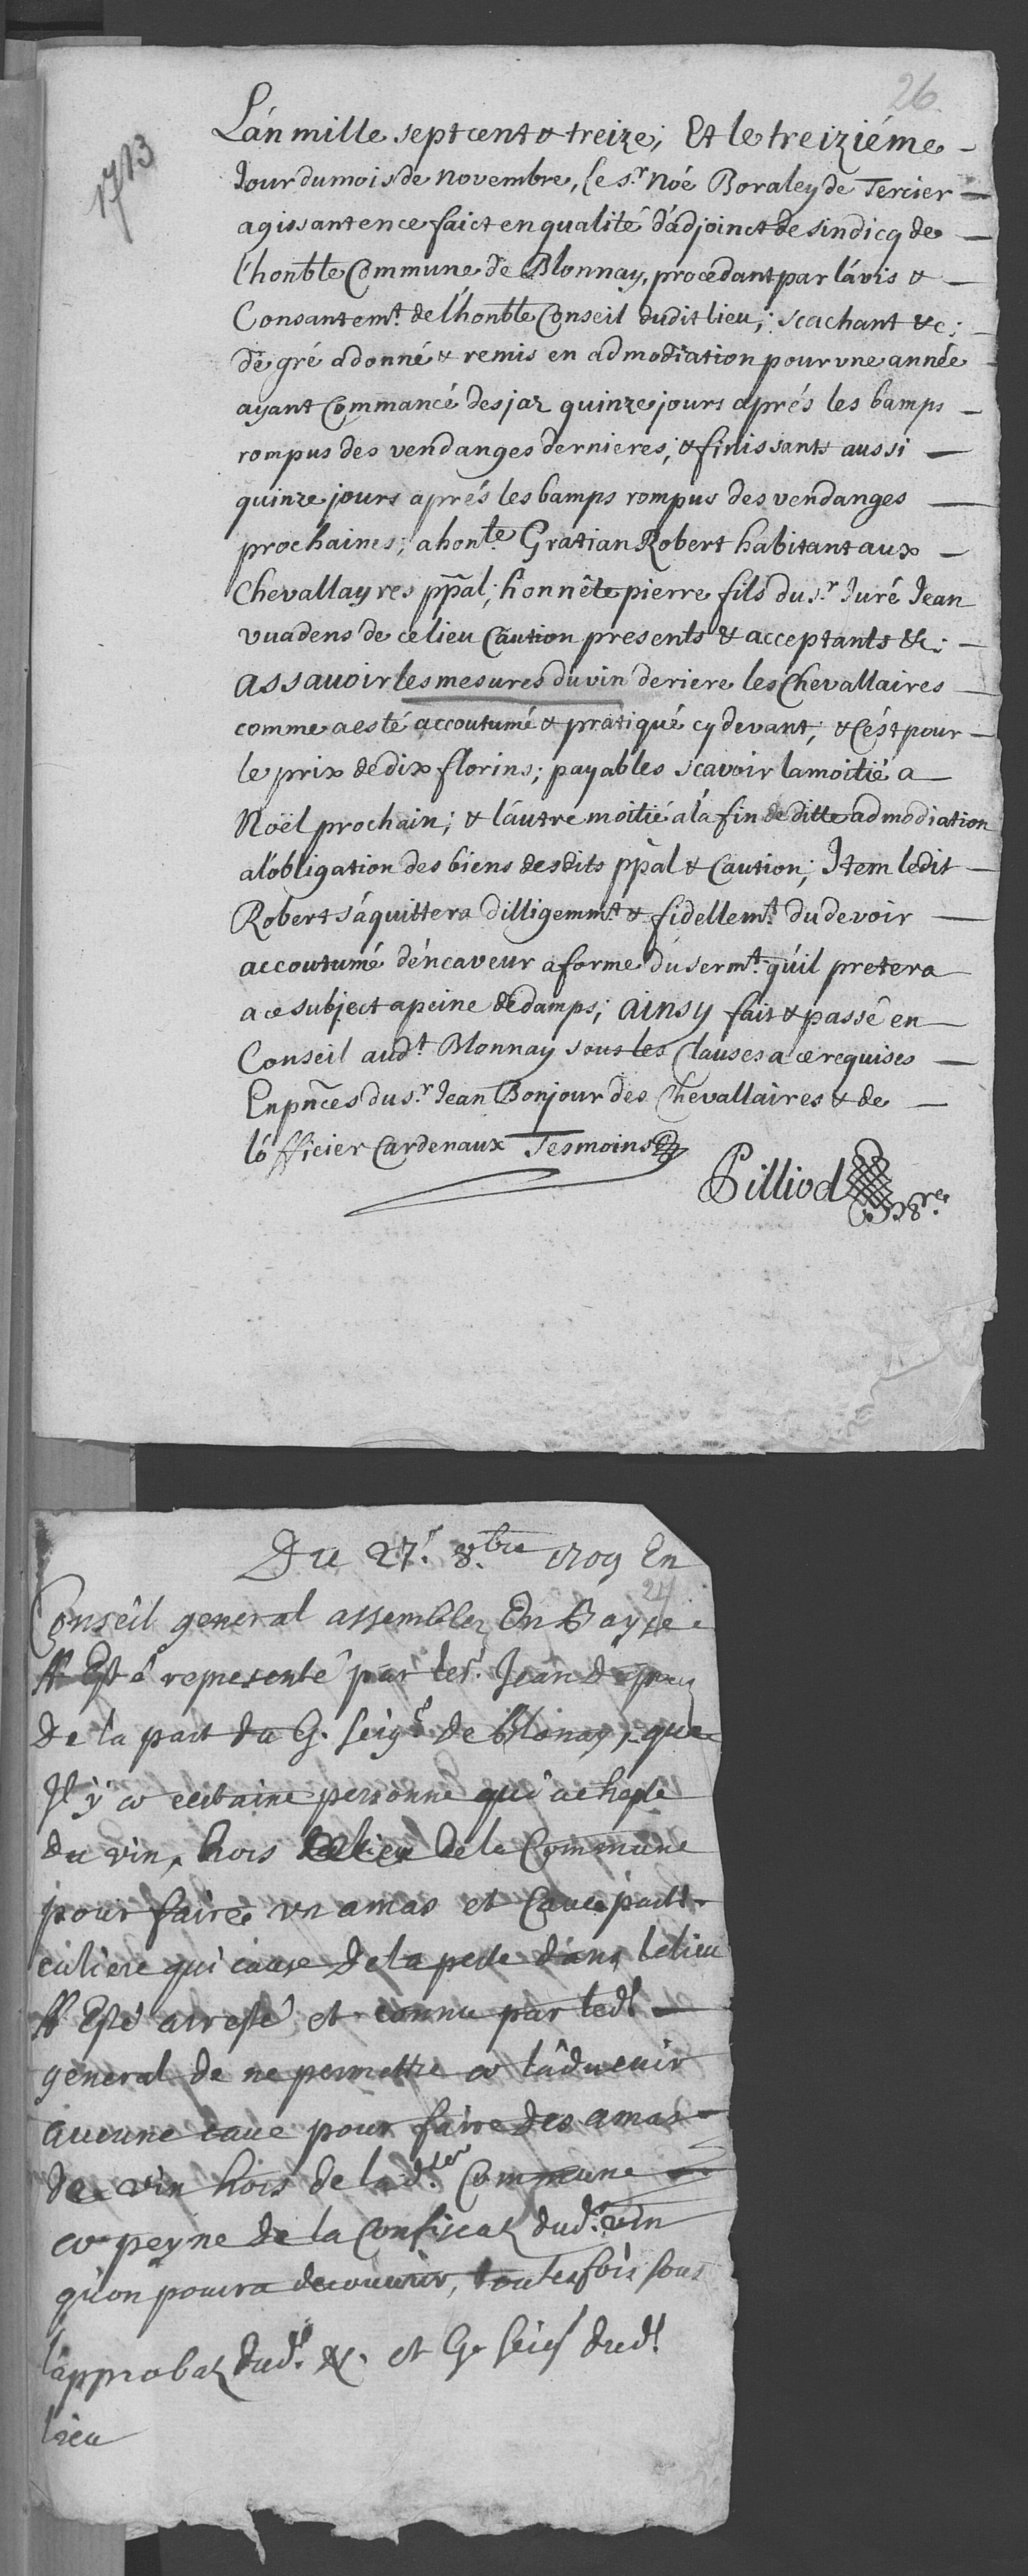 26
1713
L'an mille sept cent & treize; Et le treiziéme
Jour du mois de novembre, le s.r Noé Boraley de Tercier
agissant en ce faict en qualité d'adjoinct de sindicq de
l'honble Commune de Blonnay, procedant par l'avis &
Consantemt. de l'honble Conseil dudit lieu; scachant &c;
de gré a donné & remis en admodiation pour une année
ayant Commancé desjaz quinze jours aprés les bamps
rompus des vendanges dernieres; & finissants aussi
quinze jours aprés les bamps rompus des vendanges
prochaines; a hon.te Gratian Robert habitant aux
Chevallayres ppãl; honnête pierre fils du s.r Juré Jean
vuadens de ce lieu Caution presents & acceptants &c;
assavoir les mesures du vin deriere les Chevallaires
comme a esté accoutumé & pratiqué cy devant; & c'est pour
le prix de dix florins; payables scavoir la moitié a
Noël prochain; & l'autre moitié a la fin de ditte admodiation
a l'obligation des biens desdits ppãl & Caution; Item ledit
Robert s'aquittera dilligemmt. & fidellemt. du devoir
accoutumé d'encaveur a forme du sermt. qu'il pretera
a ce subject a peine de damps; ainsy fait & passé en
Conseil audt. Blonnay sous les Clauses a ce requises
En pñces du s.r Jean Bonjour des Chevallaires & de
l'officier Cardenaux Tesmoins
Pilliod
Du 27.e 8.bre 1709 En
24
Conseil general assemblez En Bayse
Est é representé par le sr. Jean
De la part du G. seigr. de blonay, que
Il y a certaine personne qui achepte
du vin, hors de la Commune
pour faire un amas et Cave parti-
culiere qui cause de la perte dans le lieu
Esté arresté et connu par ledt
general de ne permettre a l'advenir
aucune cave pour faire des amas
de vin hors de la d.te Commune
a peyne de la Confiscat dud. vin
qu'on poura decouvrir, toutesfois sous
l'approbat dud. &. et G. seigr dudt
lieu